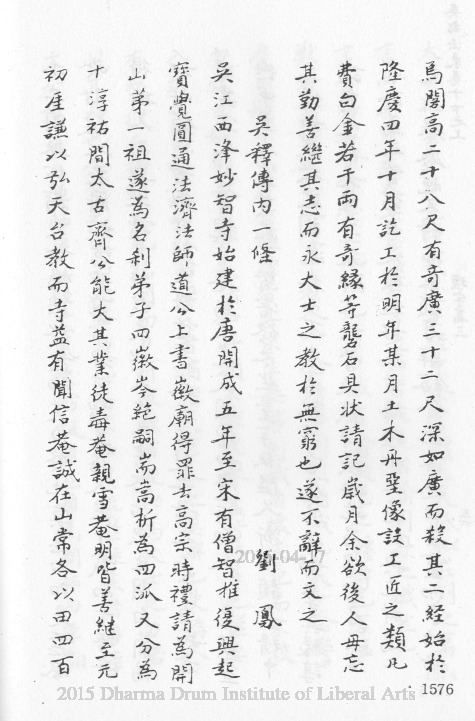 焉閣高二十八尺有奇廣三十二尺深如廣而殺其二經始於
隆慶四年十月訖工於明年某月土木丹堊像設工匠之類凡
費白金若干兩有奇緣等礱石具狀請記歲月余欲後人毋忘
其勤善繼其志而永大士之教於無窮也遂不辭而文之
吳釋傳內一條
劉鳳
吳江西浲妙智寺始建於唐開成五年至宋有僧智推復興起
寶覺圓通法濟法師道公上書徽廟得罪去高宗時禮請為開
山第一祖遂為名剎弟子四徽岑絕嗣而嵩析為四派又分為
十淳祐間太古齊公能大其業徒毒菴親雪菴明皆善繼至元
初厓謙以弘天台教而寺益有聞信菴誠在山常各以田四百
1576
2015 Dharma Drum Institute of Liberal Arts